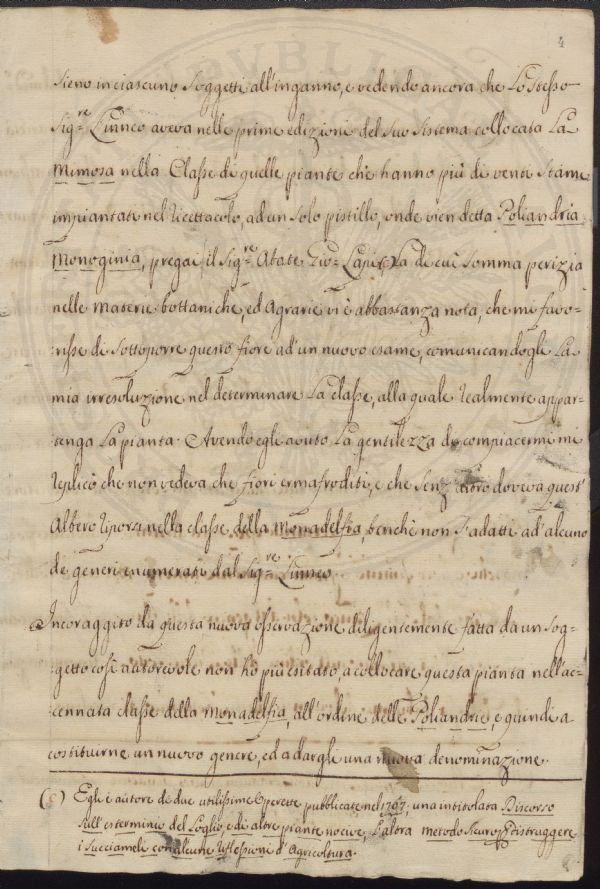 4
sieno in ciascuno soggetti all'inganno, e vedendo ancora che lo stesso
Sig.re Linneo aveva nelle prime edizioni del suo sistema collocata la
Mimosa nella Classe di quelle piante che hanno più di venti stami
impiantati nel ricettacolo, ad un solo pistillo, onde vien detta Poliandria
Monoginia, pregai il Sig.re Abate Gio: Lapi (c) la di cui somma perizia
nelle materie bottaniche, ed Agrarie vi è abbastanza nota, che mi favo=
=risse di sottoporre questo fiore ad'un nuovo esame, comunicandogli la
mia irresoluzione nel determinare la classe, alla quale realmente appar=
tenga la pianta. Avendo egli avuto la gentilezza di compiacermi mi
replicò che non vedeva che fiori ermafroditi, e che senz'altro doveva quest'
Albero riporsi nella classe della Monadelfia, benchè non s'adatti ad'alcuno
de generi enumerati dal Sig.re Linneo.
Incoraggito da questa nuova osservazione diligentemente fatta da un sog=
=getto così autorevole non ho più esitato a collocare questa pianta nell'ac=
cennata classe della Monadelfia, all'ordine delle Poliandrie, e quindi a
costituirne un nuovo genere, ed a dargli una nuova denominazione.
(c) Egli è autore di due utilissime Operette pubblicate nel 1767, una intitolata Discorso
sull'esterminio del Loglio, e di altre piante nocive, l'altra metodo sicuro p distruggere
i Succiameli con alcune riflessioni d'Agricoltura.